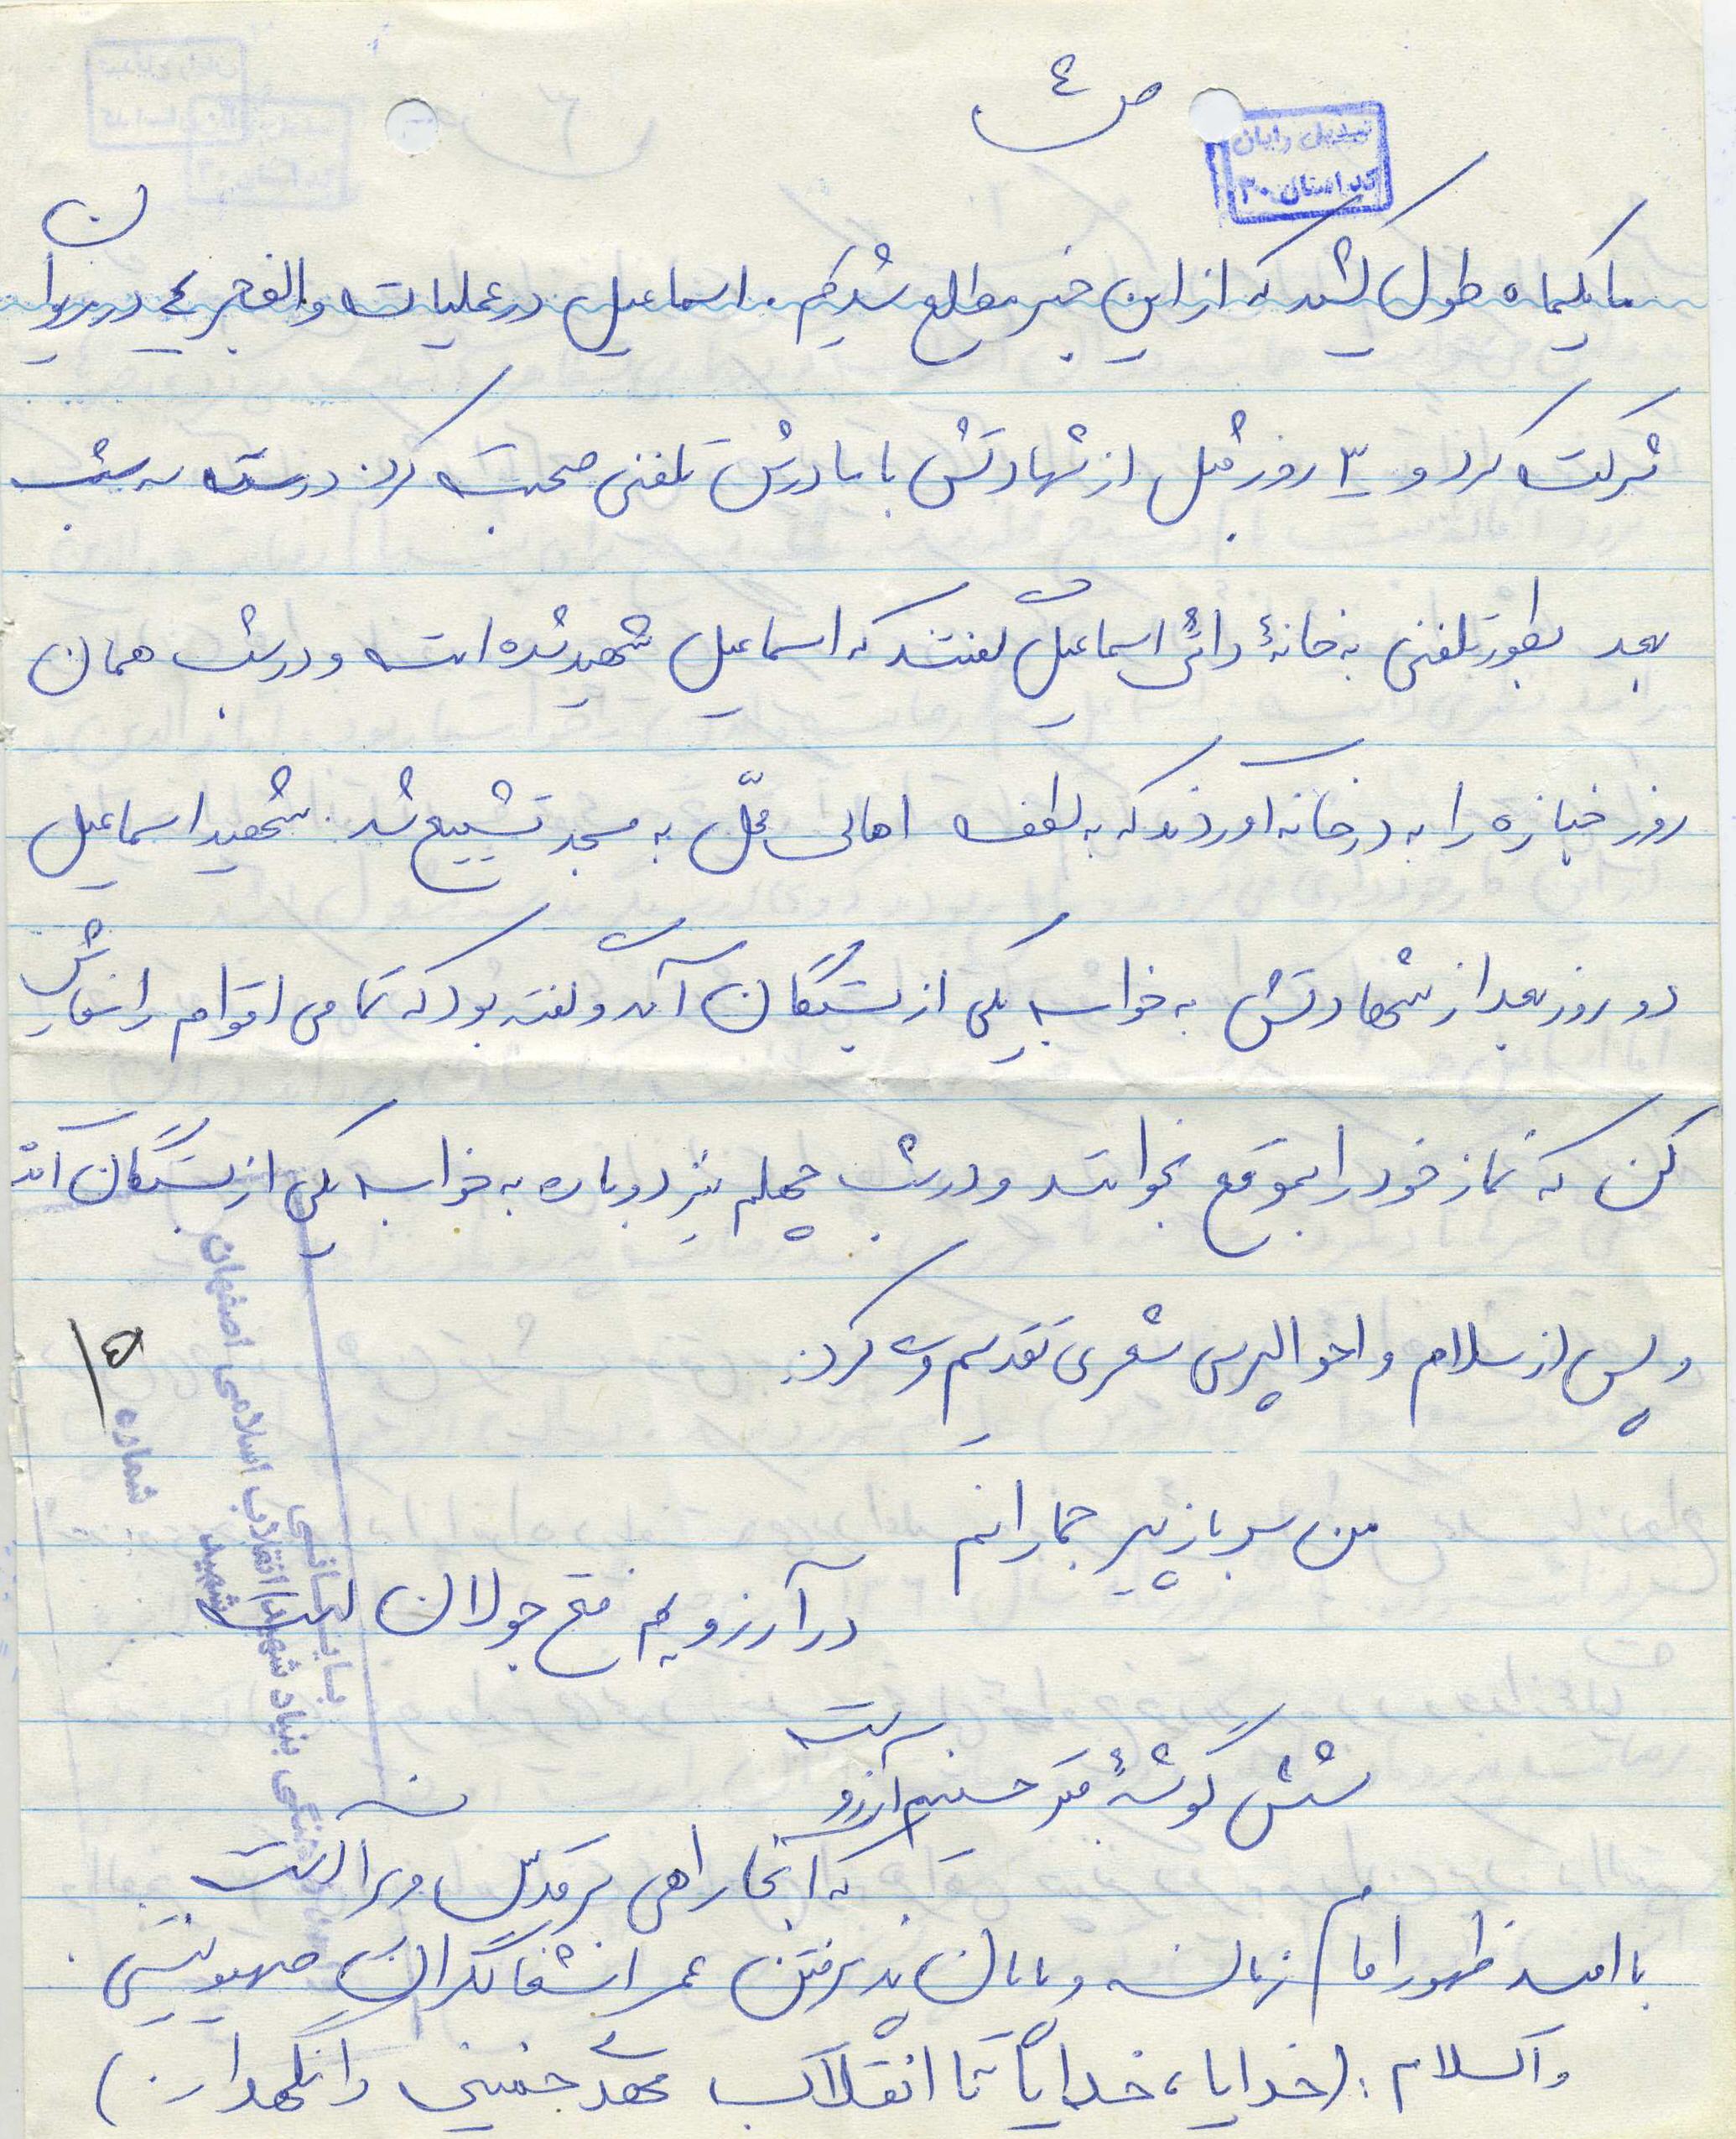 ص ٤
تبدیل رایان
کد استان ۲۰
ما یکماه طول کشید که از این خبر مطلع شدیم. اسماعیل در عملیات والفجر ٤ در مریوان
شرکت کرد و ۳ روز قبل از شهادتش با مادرش تلفنی صحبت کرد. درست سه شب
بعد بطور تلفنی به خانهٔ دائی اسماعیل گفتند که اسماعیل شهید شده است و در شب همان
روز جنازه را به در خانه آوردند که به لطف اهالی محلّ به مسجد تشییع شد. شهید اسماعیل
دو روز بعد از شهادتش به خواب یکی از بستگان آمد و گفته بود که تمامی اقوام را سفارش
کن که نماز خود را بموقع بخوانند و در شب چهلم نیز دوباره به خواب یکی از بستگان آمد
و پس از سلام و احوالپرسی شعری تقدیم وی کرد:
من سرباز پیر جمارانم
در آرزویم فتح جولان است
شش گوشهٔ قبر حسینم آرزوست
که آنجا راهی بر قدس و
با امید ظهور امام زمان و پایان پذیرفتن عمر اشغالگران صهیونیستی.
والسلام: (خدایا، خدایا تا انقلاب مهدی خمینی را نگهدار.)
بایگانی
فرهنگی بنیاد شهید انقلاب اسلامی اصفهان
شهید
شماره